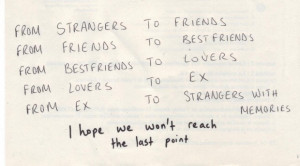 FROM STRANGERS TO FRIENDS
FROM FRIENDS TO BESTFRIENDS
FROM BESTFRIENDS TO LOVERS
FROM LOVERS TO EX
FROM EX TO STRANGERS WITH
MEMORIES
I hope we won't reach
the last point